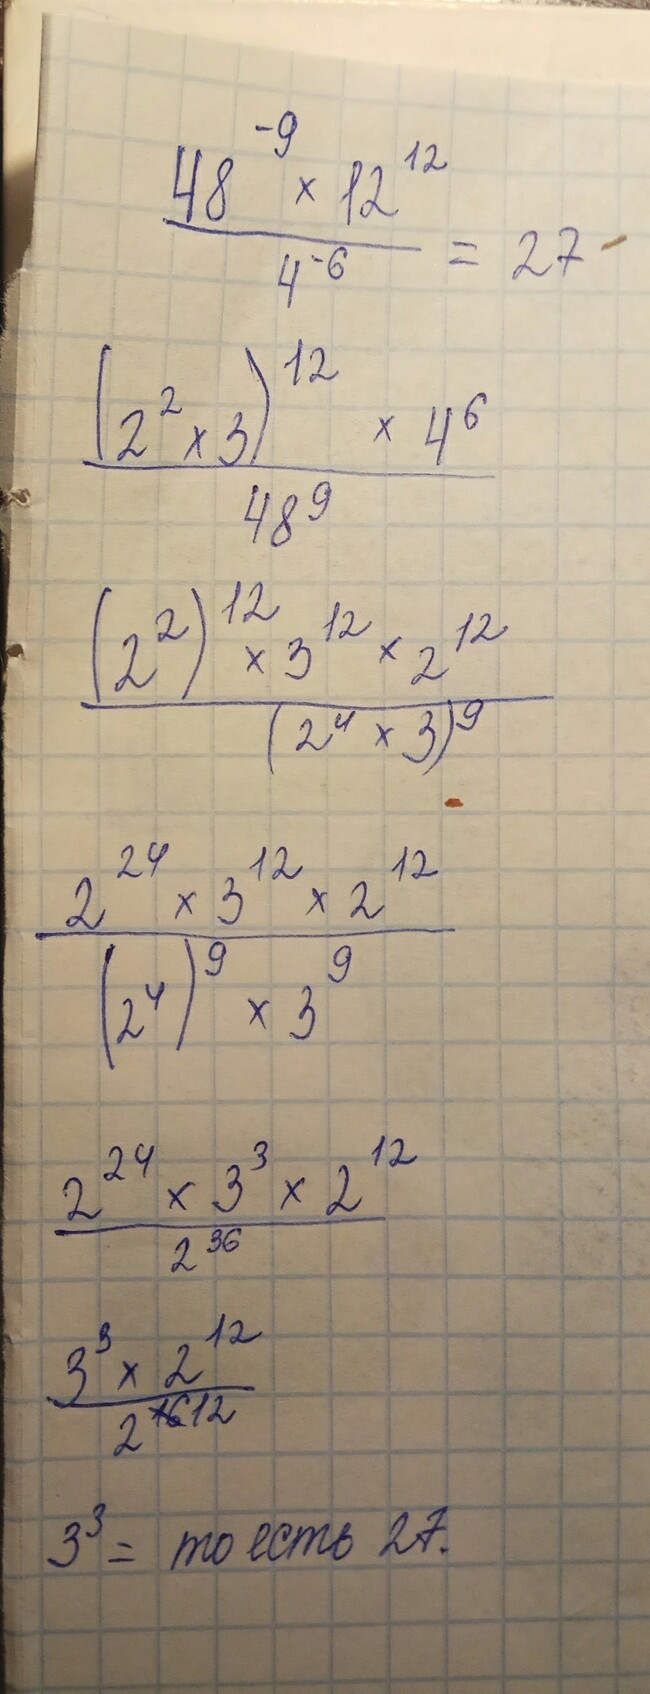 48⁻⁹ × 12¹²
4⁻⁶
= 27
(2² × 3)¹² × 4⁶
48⁹
(2²)¹² × 3¹² × 2¹²
(2⁴ × 3)⁹
2²⁴ × 3¹² × 2¹²
(2⁴)⁹ × 3⁹
2²⁴ × 3³ × 2¹²
2³⁶
3³ × 2¹²
2¹²
3³ = то есть 27.